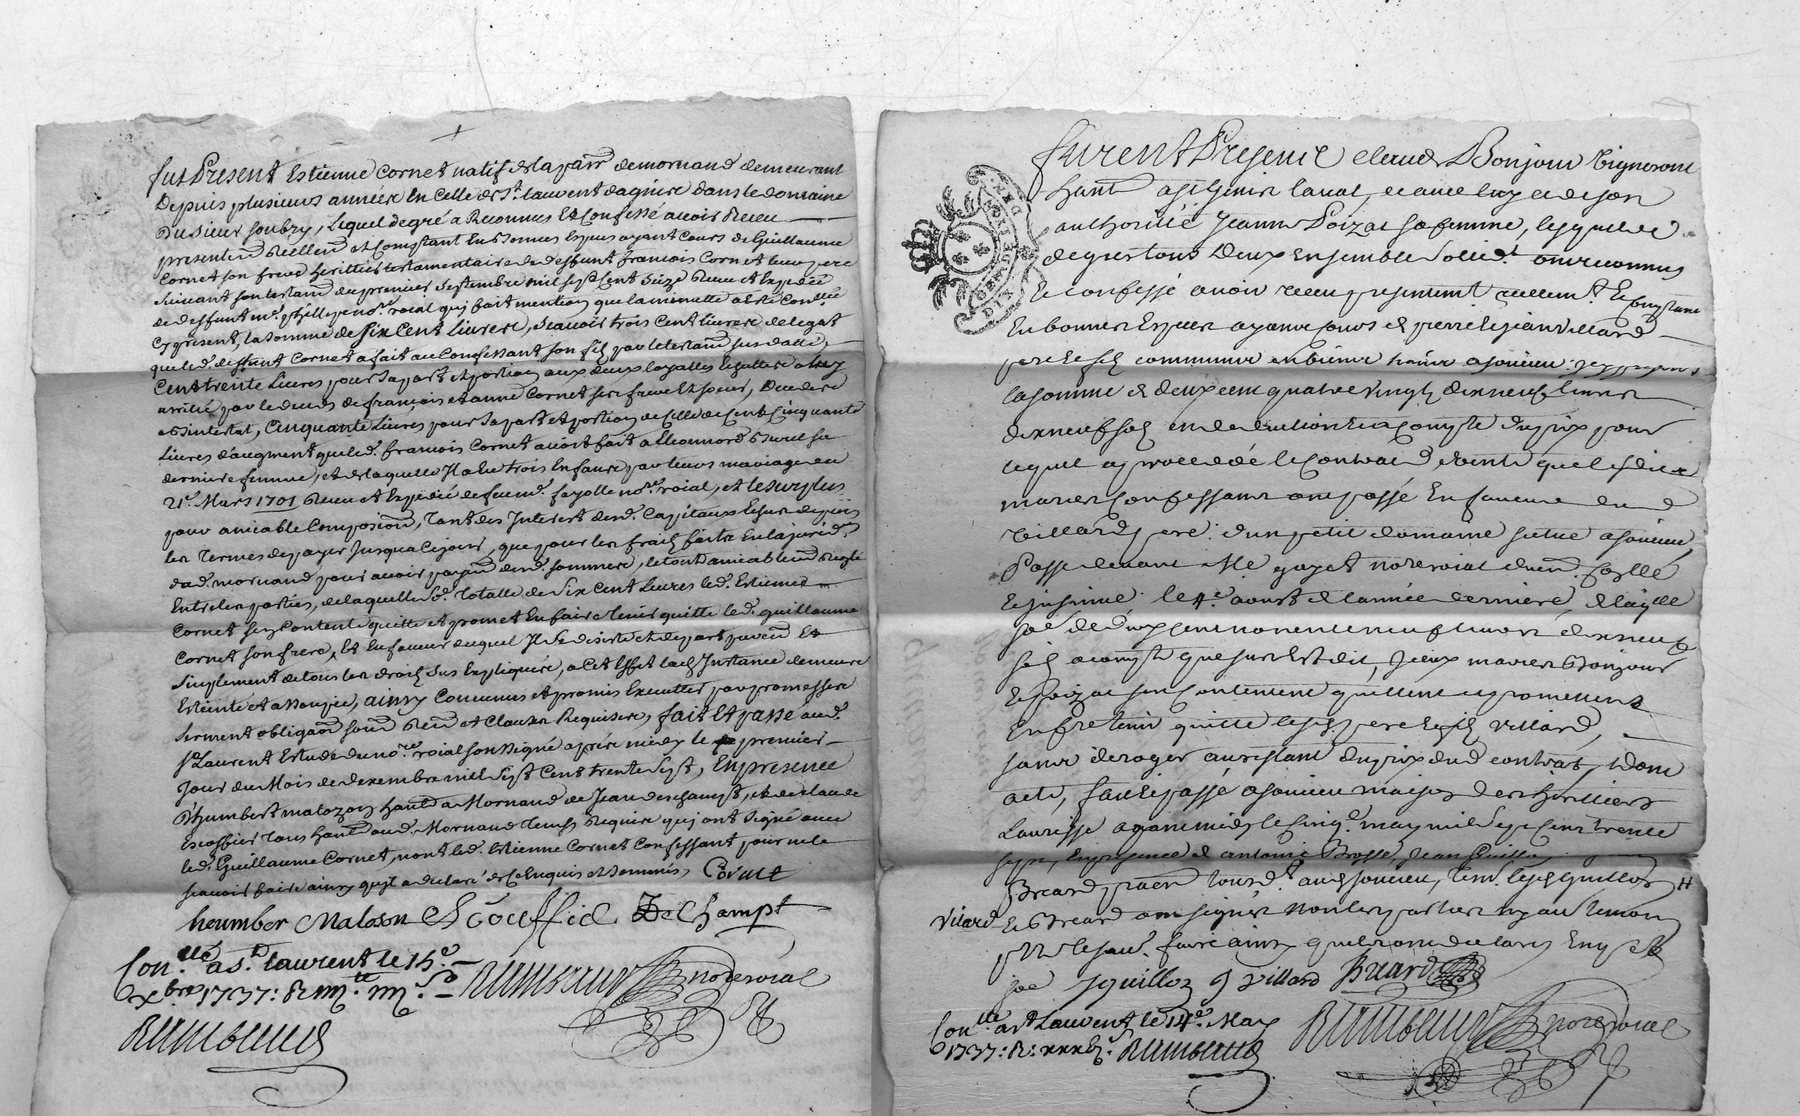 fut Present Estienne Cornet natif de la parr. de mornand demeurant
Depuis plusieurs années En Celle de St. Laurent dagniere dans le domaine
Du sieur soubry, Lequel de gré a Reconnus Et Confessé avoir Receu
presentemt. Reellemt. et Comptant En bonnes Especes ayant Cours de Guillaume
Cornet son frere herittier testamentaire de deffunt francois Cornet leur pere
suivant son testamt. du premier septembre mil sept Cent seize Receu et Expedié
de deffunt me. philippe nore. roial quy fait mention que la minutte a Esté Conllée
Cy present, la somme de six Cent Livres, scavoir trois Cent livres de legat
que led. deffunt Cornet a fait au Confessant son fils par le testamt. sus datté,
Cent trente Livres pour sa part et portion aux deux legattes
arrivé par le deces de francois et anne Cornet ses frere Et soeur, Decedes
ab intestat, Cinquante Livres pour sa part et portion de Celle de Cent Cinquante
Livres d'augment que led. francois Cornet auoit fait a Eleonnord burel sa
derniere femme, et de laquelle Il a Eu trois Enfans, par leurs mariage du
21e. Mars 1701 Receu et Expedié de feu me. fayolle nore. roial, et le surplus
pour amiable Composion, tant des Interest desd. Capitaux Echus depuis
les termes de payer Jusqua Ce jour, que pour les frais faits En la jurid.on
dud. mornand pour avoir payemt. desd. sommes, le tout amiablemt. Reglé
Entre les parties, de laquelle sd. totalle de six Cent Livres led. Estienne
Cornet se Contente quitte et promet En faire tenir quitte led. guillaume
Cornet son frere, Et En faveur duquel Il se desiste et depart purem. Et
simplement de tous les droits sus Expliqués, a Cet Effet lad. Instance demeure
Esteinte et assoupie, ainsy Convenus et promis Executter par promesses
serment obligaon. soum. Renon. et Clauses Requises, fait Et passé aud.
St. Laurent Estude du nore. roial soussigné apres midy le premier
Jour du Mois de dexembre mill sept Cent trente sept, En presence
D'humbert malozon habt. a Mornand de Jean deschampt, et de claude
Escoffier tous habt. aud. Mornand temoins Requis quy ont signé avec
led. Guillaume Cornet, non led. Estienne Cornet Confessant pour ne le
scavoir faire ainsy quyl a declaré de Ce Enquis et sommé, Cornet
heumber Malosn Escouffié DeChampt
Con.llé a st. Laurent le 14e.
xbre 1737:
nore roial
furent Presents claude Bonjour vigneront
habt. a St Genis laual, et avec luy et de son
authorité Jeanne Poizat sa femme, lesquels
de gré tous Deux Ensemble solid.t ont reconnus
Et confessé avoir receu presentemt. reellemt. Et Comptant
En bonnes Especes ayant cours de pierre et jean villard
pere et fils communs en biens habts. a soucieu
la somme de deux cent quatre vingt dixneuf livres
dixneuf sols en deduction et a Compte du prix pour
lequel a procedé le Contract de vente que lesdits
mariés Confessants ont passé En faueur dud.
Villard pere d'un petit domaine scitué a soucieu,
Passé devant Me. guyot nore roial Receu.
Et insinué le 4e. aoust de l'année derniere, de laq.lle
so.e de deux cent nonente neuf livres dixneuf
sols a compte que sus Est dit, Iceux mariés Bonjour
et Poizat se Contentent quittent et promettent
En fre tenir quitte lesd. pere et fils Villard,
sans deroger au restant du prix dud contrat, dont
acte, fait et passé a soucieu maison des heritiers
Laurisse avant midy le Cinqe. may mil sept Cent trente
sept, En presence de antoine Brossé, Jean Guillon
Breard tous habt. aud. soucieu, tem. lesd. Guillon
Vilard Et Breard ont signés non les parties ny au. temoin
pr. ne le scau. faire ainsy quils ont declarés Enq. et
so.é Jguillon J villard Breard
Con.llé a st Laurent le 14e. May
1737: R: nore roial